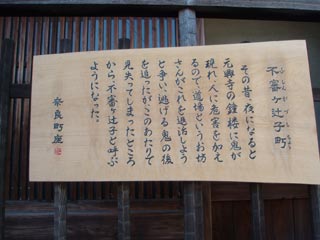 不審ヶ辻子町
ふしんがづしちょう
その昔夜になると
元興寺の鐘楼に鬼が
現れ、人に危害を加え
るので道場というお坊
さんがこれを退治しよう
と争い、逃げる鬼の後
を追ったがこのあたりで
見失ってしまったところ
から、不審ヶ辻子と呼ぶ
ようになった。
奈良町座